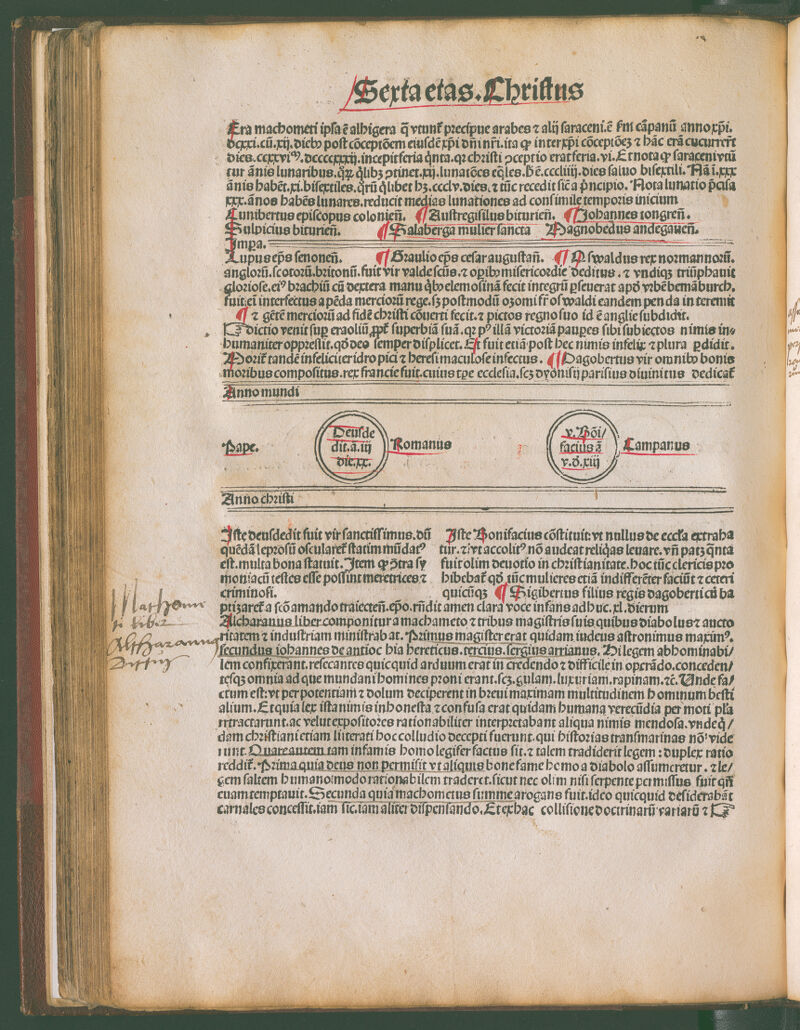 Sexta etas. Christus
Era machometi ipsa ē alhigera q̄ vtunt᷑ precipue arabes ⁊ alij saraceni.ē
dies.ccxxvi⁹.dccccxxxij.incepit feria q̄nta.qꝛ christi ↄceptio erat feria.vi.Et nota ꝙ saraceni vtū
tur ānis lunaribus.
ānis habēt.xi.bisextiles.qꝛū q̄libet hꝫ.ccclv.dies.⁊ tūc recedit sic a principio. Nota lunatio p̄cisa
xxx.ānos habēs lunares.reducit medias lunationes ad consimile temporis inicium
Cunibertus episcopus colonieñ. ¶ Austregisilus bituricñ. ¶ Johannes tongreñ.
Sulpicius bituricñ. ¶ Salaberga mulier sancta Magnobedus andegaueñ.
Impa.
Lupus ep̄s senoneñ. ¶ Braulio ep̄s cesaraugustañ. ¶ Oswaldus rex normannoꝛū.
angloꝛū.scotoꝛū.britonū.fuit vir valde scūs.⁊ opib⁹ misericordie deditus.⁊ vndiqꝫ triūphauit
gloriose.ei⁹ brachiū cū dextera manu q̄b⁹ elemosinā fecit integrū pseuerat apd̓ vrbē bemāburch.
fuit eī interfectus a pēda mercioꝛū rege.sꝫ postmodū osomi fr̄ oswaldi eandem penda interemit
¶ ⁊ gētē mercioꝛū ad fidē christi cōuerti fecit.⁊ pictos regno suo id ē anglie subdidit.
dictio venit sup eraoliū ꝓpt̄ superbiā suā.qꝛ p⁹ illā victoriā paupes sibi subiectos nimis in⸗
humaniter oppressit.qd̓ deo semper displicet. Et fuit etiā post hec nimis infelix ⁊ plura pdidit.
Morit᷑ tandē infeliciter idropici ⁊ heresi maculose infectus. ¶ Dagobertus vir omnib⁹ bonis
moribus compositus.rex francie fuit.cuius tpe ecclesia.scꝫ dyonisij parisius diuinitus dedicat᷑
Anno mundi
Pape.
Deusde
dit.a.iij
die.xx.
Romanus
v. Bōi/
facius ā
v.d̓.xiij
Campanus
Anno christi
Iste deusdedit fuit vir sanctissimus.dū
quēdā leprosū oscularet᷑ statim mūdat⁹
est.multa bona statuit. Item ꝙ ↄtra sy
moniacū testes esse possint meretrices ⁊
criminosi.
Iste Bonifacius cōstituit:vt nullus de eccl̄ia extraha
tur.⁊:vt accolit⁹ nō audeat reliq̄as leuare.vñ patꝫ q̄nta
fuit olim deuotio in christianitate.hoc tūc clericis pro
hibebat᷑ qd̓ tūc mulieres etiā indifferēter faciūt ⁊ ceteri
quicūqꝫ ¶ Sigibertus filius regis dagoberti cū ba
ptizaret᷑ a scō amando traiecteñ.ep̄o.rn̄dit amen clara voce infans adhuc.xl.dierum
Alcharanus liber componitur a machameto ⁊ tribus magistris suis quibus diabolus ⁊ aucto
ritatem ⁊ industriam ministrabat. Primus magister erat quidam iudeus astronimus maxim⁹.
secundus iohannes de antiochia hereticus.tercius.sergius arrianus. Hi legem abhominabi/
lem confixerant.resecantes quicquid arduum erat in credendo ⁊ difficile in operādo.conceden/
tesqꝫ omnia ad que mundani homines proni erant.scꝫ.gulam.luxuriam.rapinam.⁊c. Unde fa/
ctum est:vt per potentiam ⁊ dolum deciperent in breui maximam multitudinem hominum besti
alium. Et quia lex ista nimis inhonesta ⁊ confusa erat quidam humana verecūdia per moti pl̄a
retractarunt.ac velut expositores rationabiliter interpretabant aliqua nimis mendosa.vnde q̄/
dam christiani etiam litterati hoc colludio decepti fuerunt.qui historias transmarinas nō vide
runt. Quare autem tam infamis homo legifer factus sit.⁊ talem tradiderit legem:duplex ratio
reddit᷑. Prima quia deus non permisit vt aliquis bone fame homo a diabolo assumeretur.⁊ le/
gem saltem humano modo rationabilem traderet.sicut nec olim nisi serpente permissus fuit qn̄
euam temptauit. Secunda quia machometus summe arogans fuit.ideo quicquid desiderabāt
carnales concessit.iam sic.iam aliter dispensando. Et ex hac collisione doctrinaꝛū variaꝛū ⁊